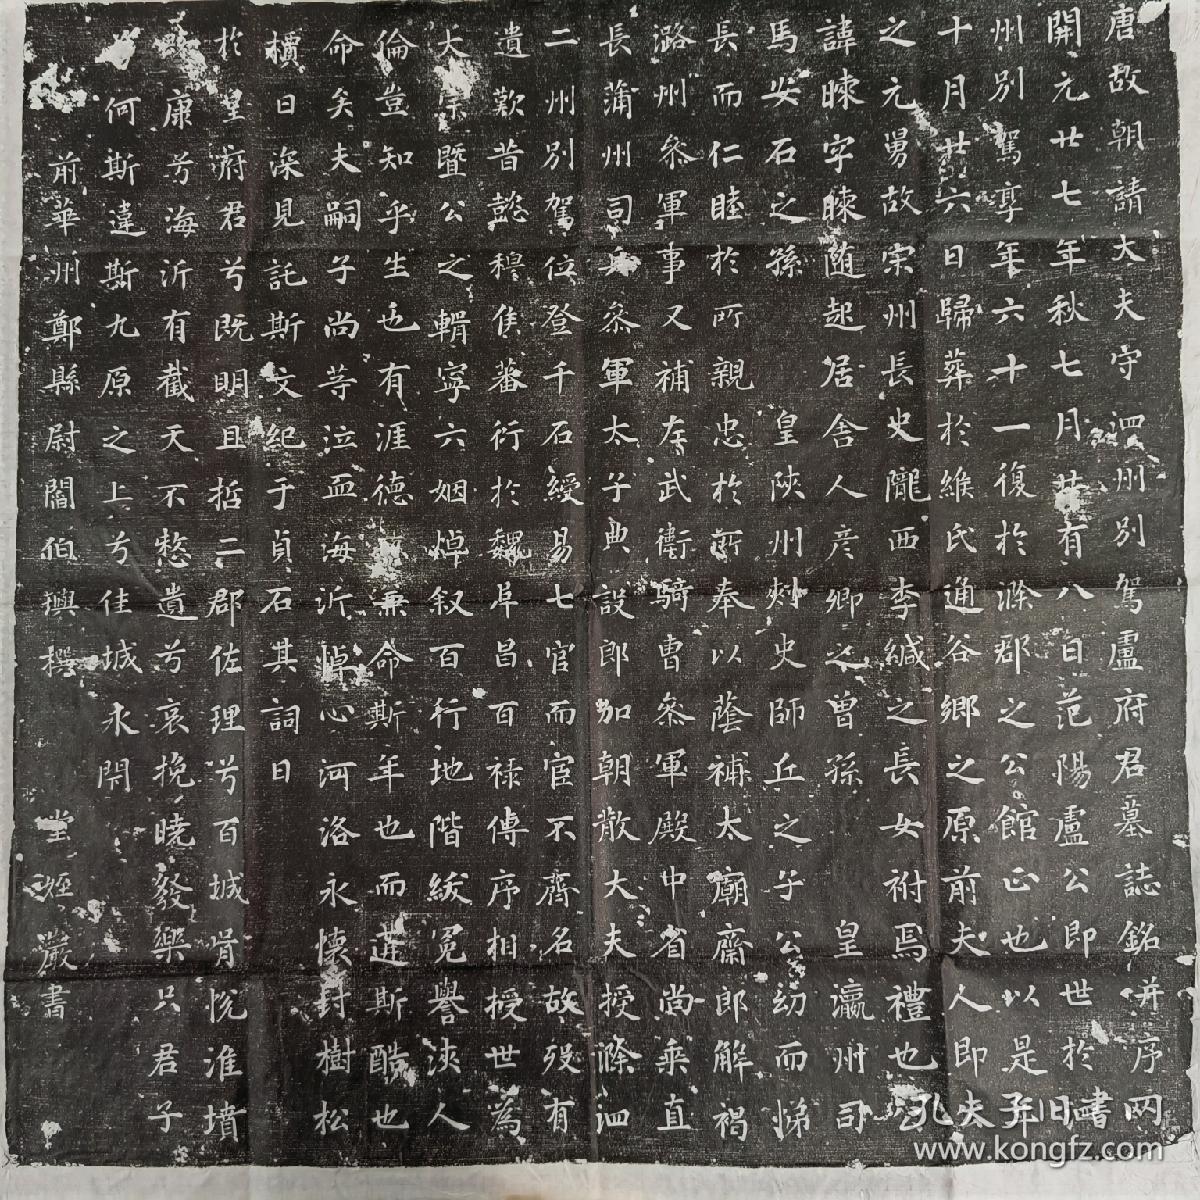 唐故朝請大夫守泗州別駕盧府君墓誌銘并序
開元廿七年秋七月廿有八日范陽盧公即世於
州別駕享年六十一復於滁郡之公館正也以是年
十月廿六日歸葬於緱氏通谷鄉之原前夫人即夫
之元舅故宋州長史隴西李緘之長女祔焉禮也公
諱暕字暕隨起居舍人彥卿之曾孫 皇瀛州司
馬安石之孫 皇陝州刺史師丘之子公幼而悌
長而仁睦於所親忠於所奉以蔭補太廟齋郎解褐
潞州參軍事又補左武衛騎曹參軍殿中省尚乘直
長蒲州司兵參軍太子典設郎加朝散大夫授滁泗
二州別駕位登千石綬易七官而宦不齊名故歿有
遺歎昔懿穆侯蕃衍於魏阜昌百祿傳序相授世為
大宗暨公之輯寧六姻焯敘百行地階紱冕譽浹人
倫豈知乎生也有涯德無兼命斯年也而遘斯酷也
命矣夫嗣子尚等泣血海沂悼心河洛永懷封樹松
檟日深見託斯文紀于貞石其詞曰
於皇府君兮既明且哲二郡佐理兮百城胥悅淮墳
康兮海沂有截天不憖遺兮哀挽曉發樂只君子
何斯違斯九原之上兮佳城永閇
前華州鄭縣尉閻伯璵撰 堂姪巖書
孔夫子旧书网
www.kongfz.com